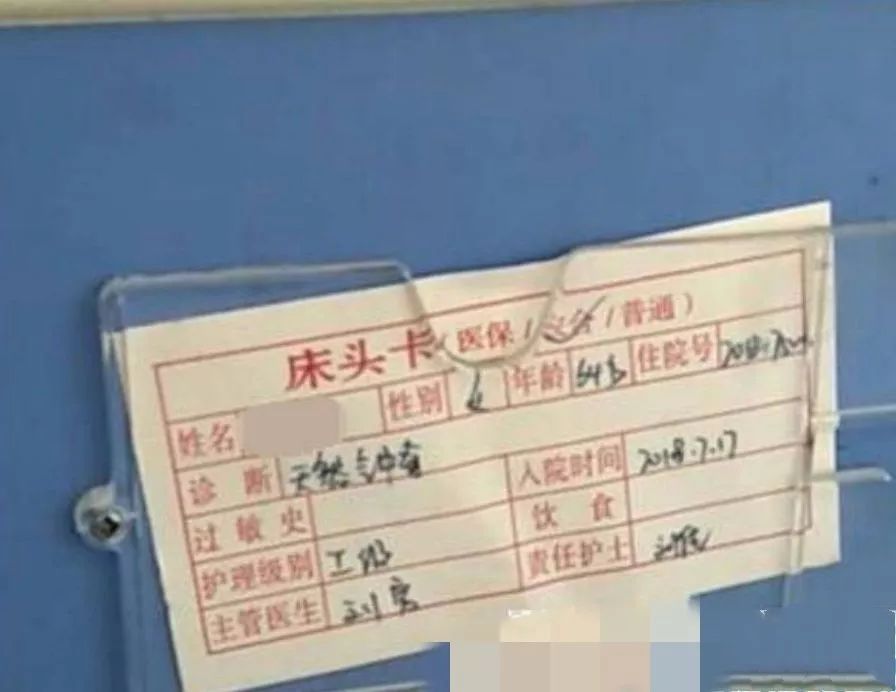 床头卡(医保/交合/普通)
姓名 性别 女 年龄 54岁 住院号
诊断 天然气中毒 入院时间 2018.7.17
过敏史 饮食
护理级别 工级 责任护士
主管医生 刘